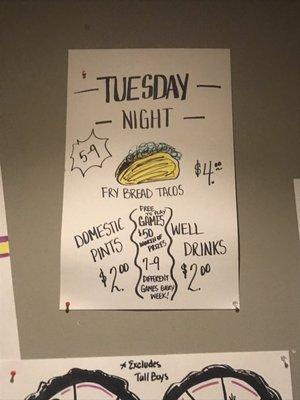 TUESDAY
— NIGHT —
5-9
$4.00
FRY BREAD TACOS
DOMESTIC
PINTS
$2.00
FREE
TO PLAY
GAMES
$50
WORTH OF
PRIZES
7-9
DIFFERENT
GAMES EVERY
WEEK!
WELL
DRINKS
$2.00
* Excludes
Tall Boys